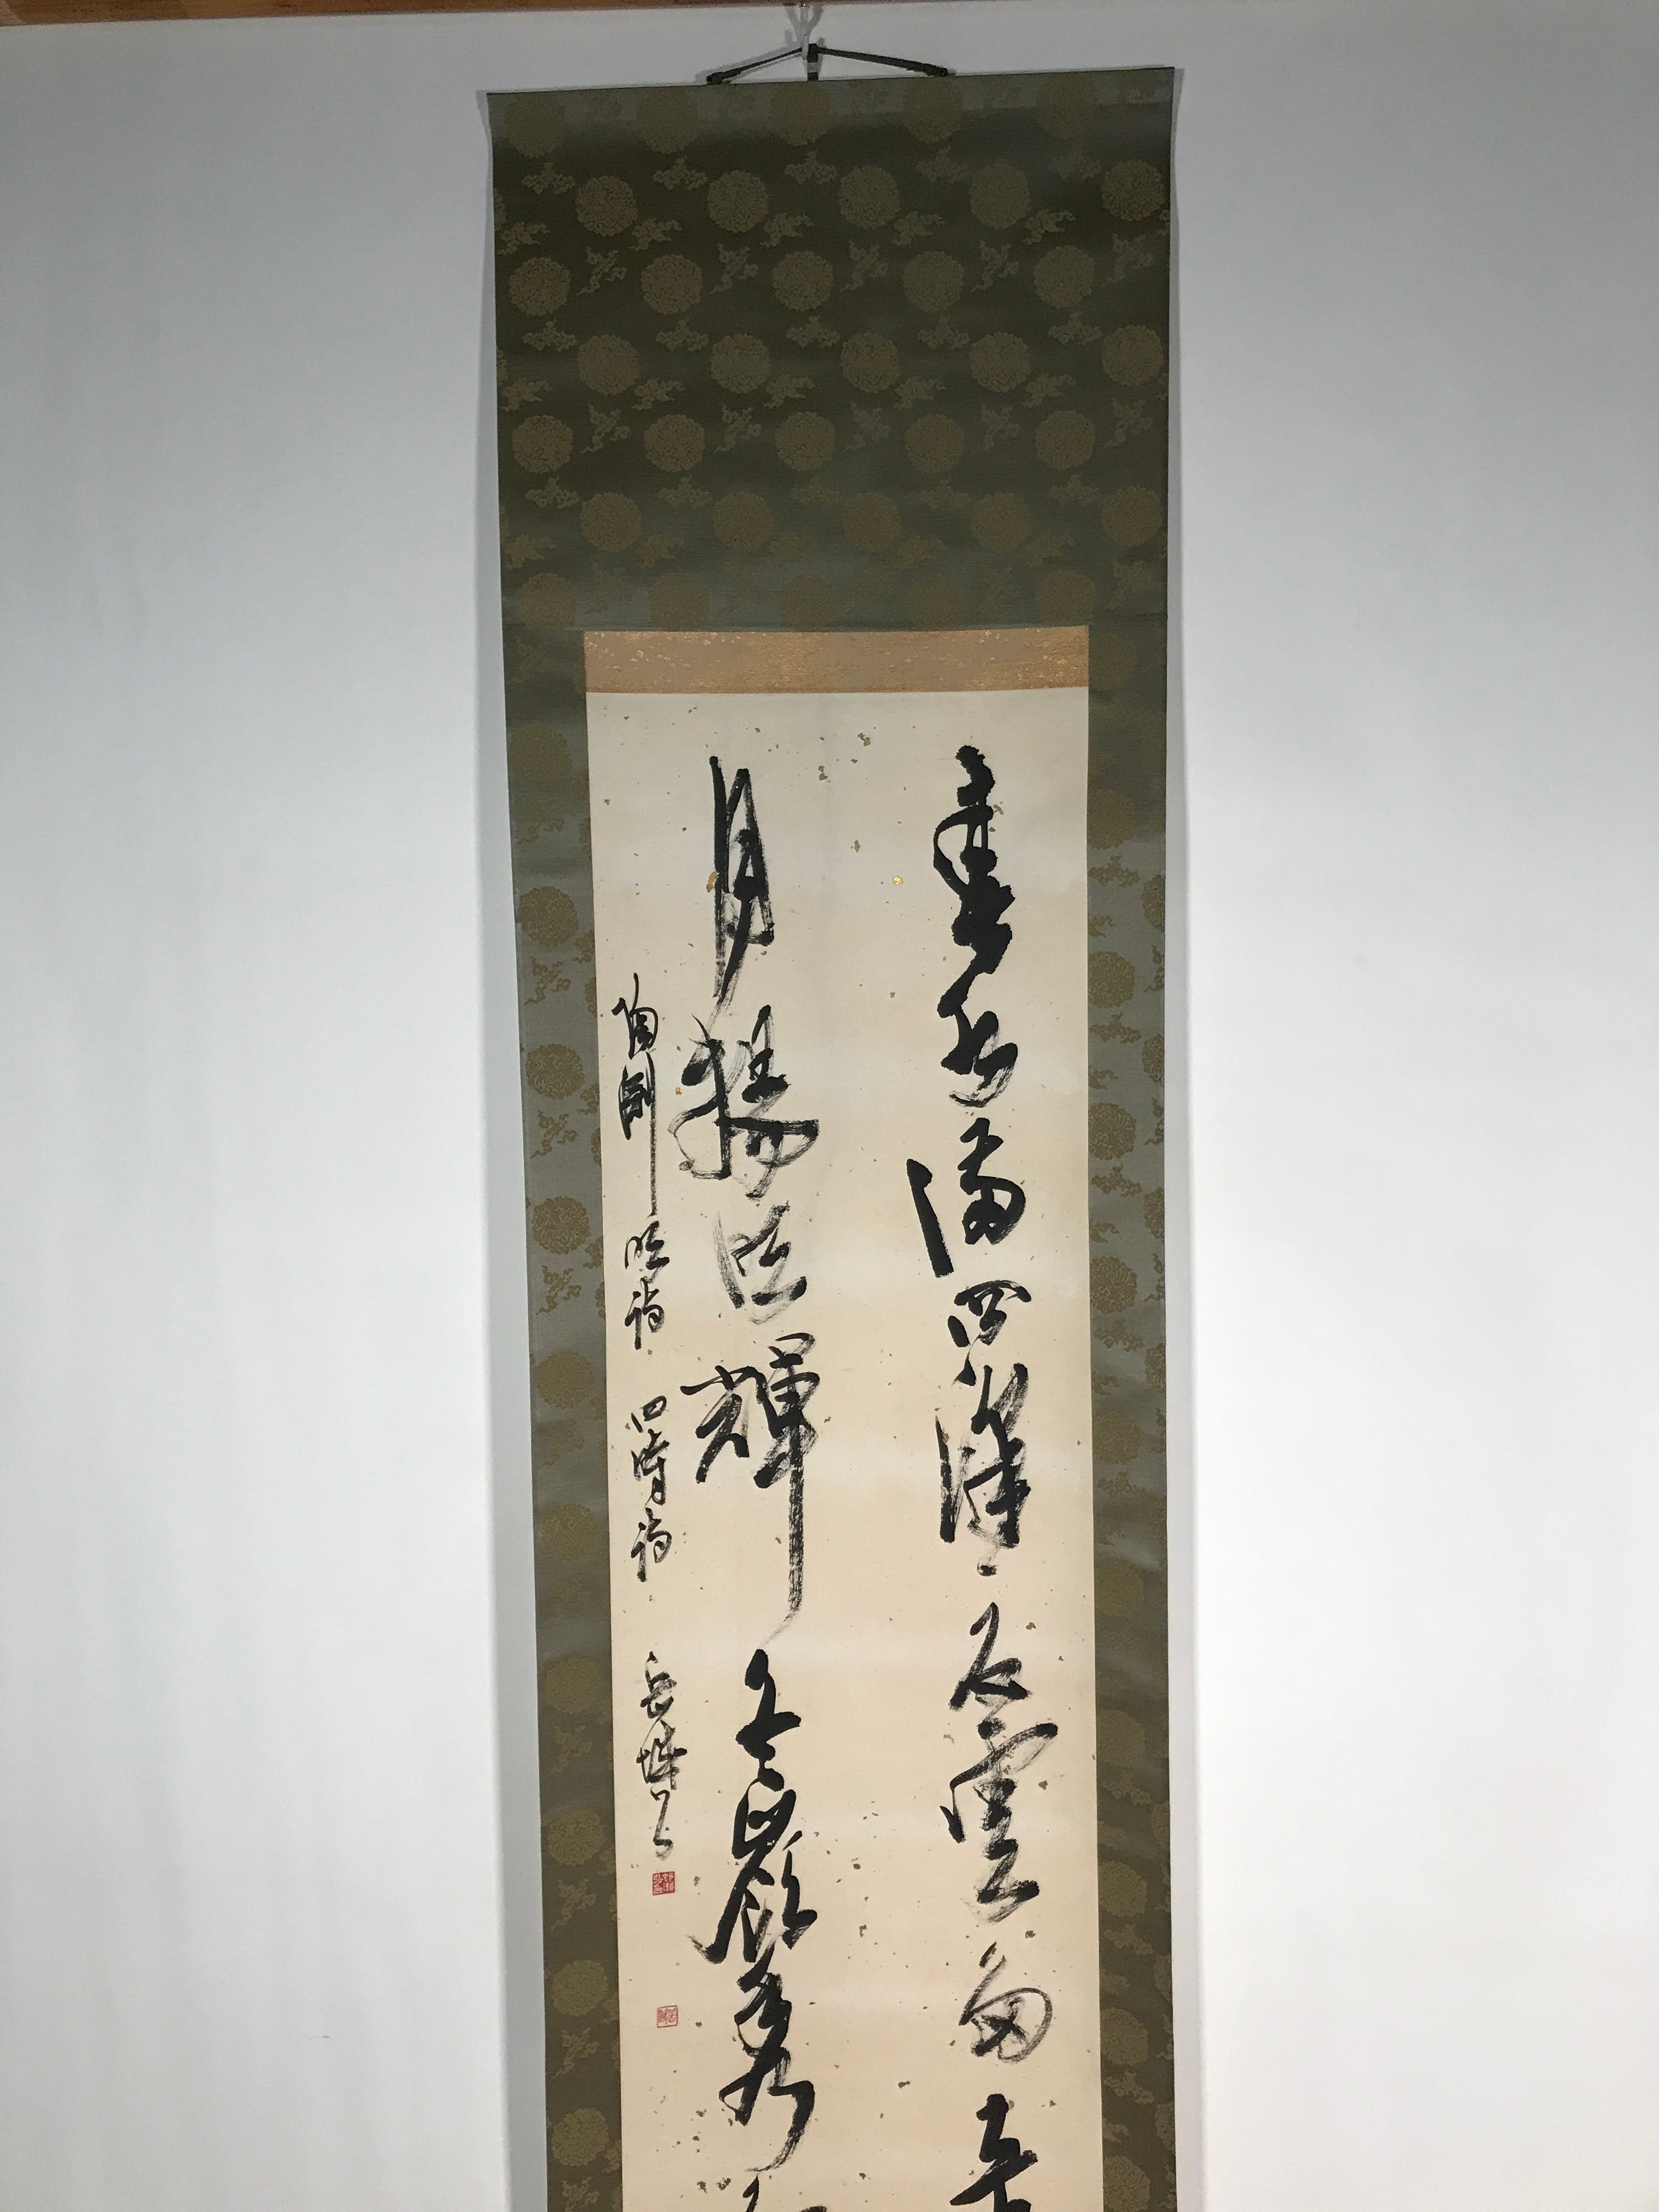 春水滿四澤夏雲多
月揚明輝冬嶺秀
陶淵明詩 四時詩